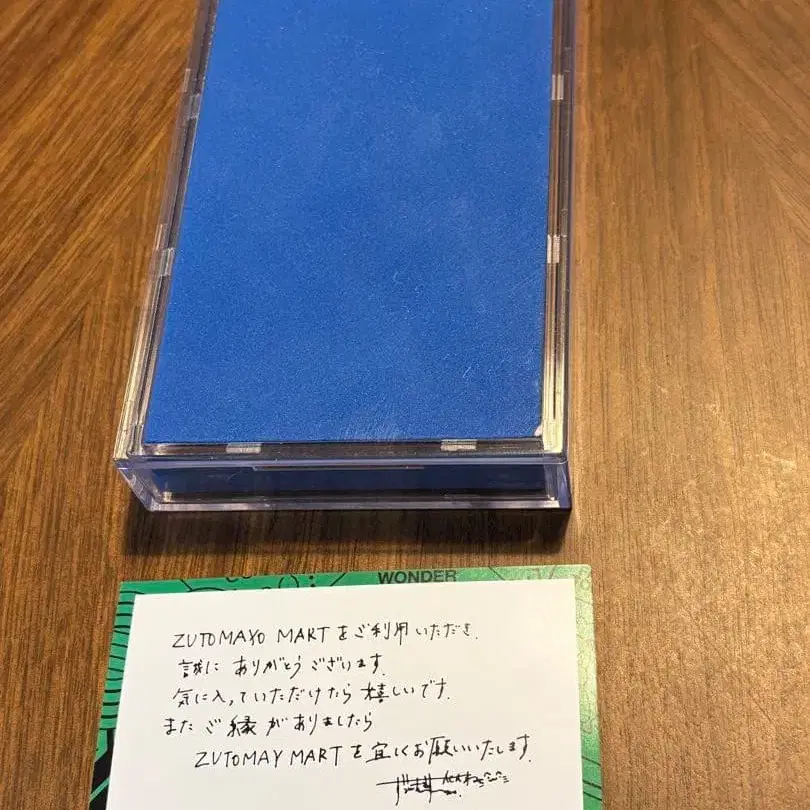 WONDER
ZUTOMAYO MART をご利用いただき、
誠に ありがとうございます。
気に入っていただけたら 嬉しいです。
また ご縁がありましたら
ZUTOMAY MART を宜しくお願いいたします。